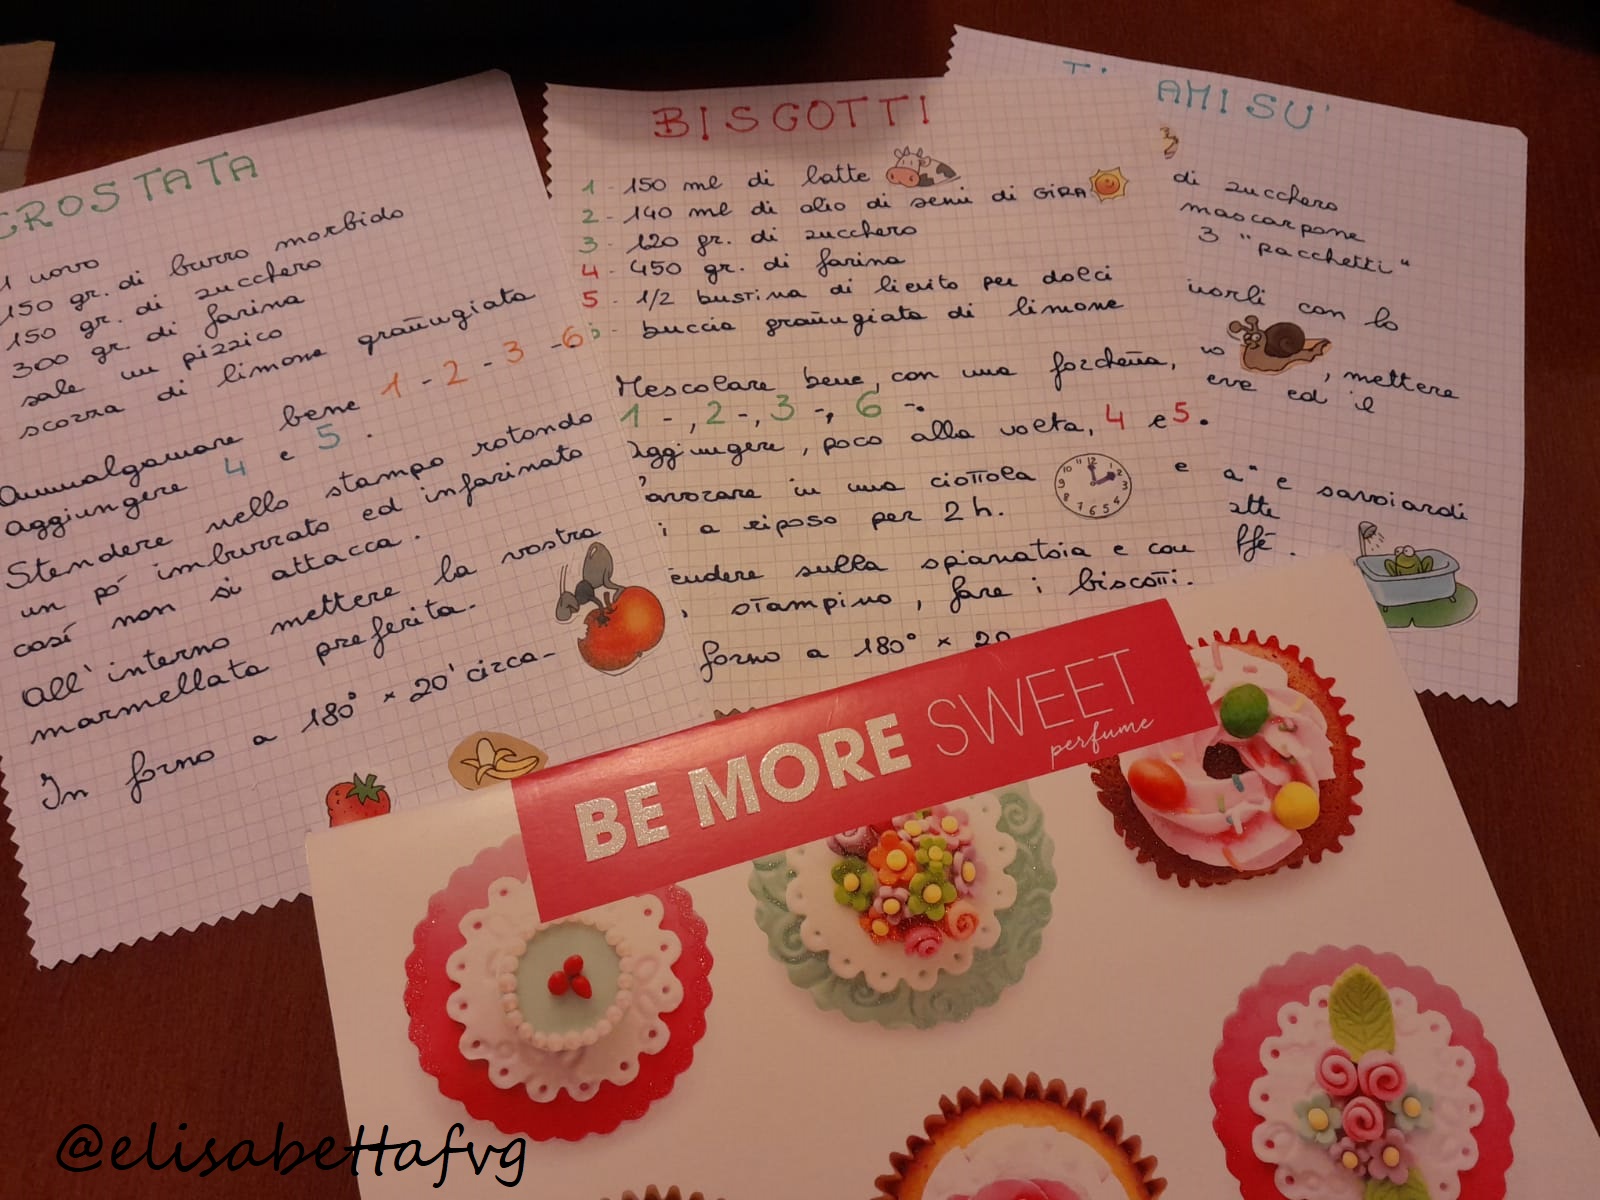 CROSTATA
1 uovo
150 gr. di burro morbido
150 gr. di zucchero
300 gr. di farina
sale un pizzico
scorza di limone grattugiata
Ammalgamare bene 1 - 2 - 3 - 6
aggiungere 4 e 5 .
Stendere nello stampo rotondo
un pó imburrato ed infarinato
cosí non si attacca .
All'interno mettere la vostra
marmellata preferita.
In forno a 180° × 20' circa
BISCOTTI
1 - 150 ml di latte
2 - 140 ml di olio di semi di GIRA
3 - 120 gr. di zucchero
4 - 450 gr. di farina
5 - 1/2 bustina di lievito per dolci
buccia grattugiata di limone
Mescolare bene, con una forchetta,
1 - , 2 - , 3 - , 6 - .
Aggiungere, poco alla volta, 4 e 5 .
in una ciottola e
a riposo per 2 h.
sulla spianatoia e con
, stampino, fare i biscotti.
forno a 180° × 20
12 1 2 3 4 5 6 7 8 9 10 11
AMISU'
di zucchero
mascarpone
3 "pacchetti"
con lo
, mettere
ed il
e savoiardi
BE MORE SWEET
perfume
@elisabettafvg